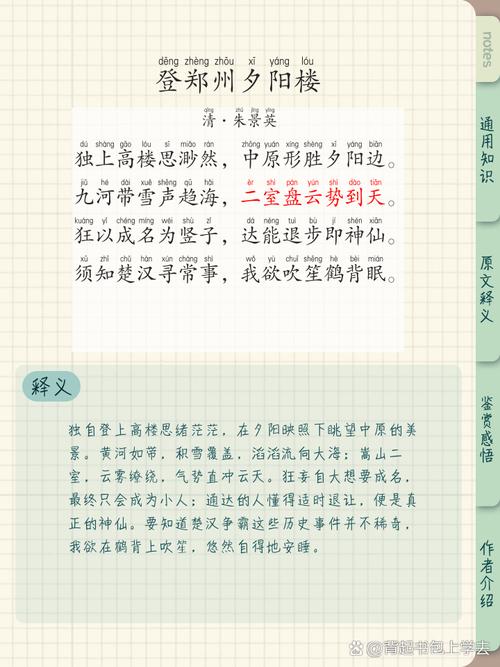 notes
dēng zhèng zhōu xī yáng lóu
登郑州夕阳楼
qīng zhū jǐng yīng
清·朱景英
dú shàng gāo lóu sī miǎo rán zhōng yuán xíng shèng xī yáng biān
独上高楼思渺然，中原形胜夕阳边。
jiǔ hé dài xuě shēng qū hǎi èr shì pán yún shì dào tiān
九河带雪声趋海，二室盘云势到天。
kuáng yǐ chéng míng wéi shù zǐ dá néng tuì bù jí shén xiān
狂以成名为竖子，达能退步即神仙。
xū zhī chǔ hàn xún cháng shì wǒ yù chuī shēng hè bèi mián
须知楚汉寻常事，我欲吹笙鹤背眠。
释义
独自登上高楼思绪茫茫，在夕阳映照下眺望中原的美
景。黄河如带，积雪覆盖，滔滔流向大海；嵩山二
室，云雾缭绕，气势直冲云天。狂妄自大想要成名，
最终只会成为小人；通达的人懂得适时退让，便是真
正的神仙。要知道楚汉争霸这些历史事件并不稀奇，
我欲在鹤背上吹笙，悠然自得地安睡。
通用知识
原文释义
鉴赏感悟
作者介绍
@背起书包上学去